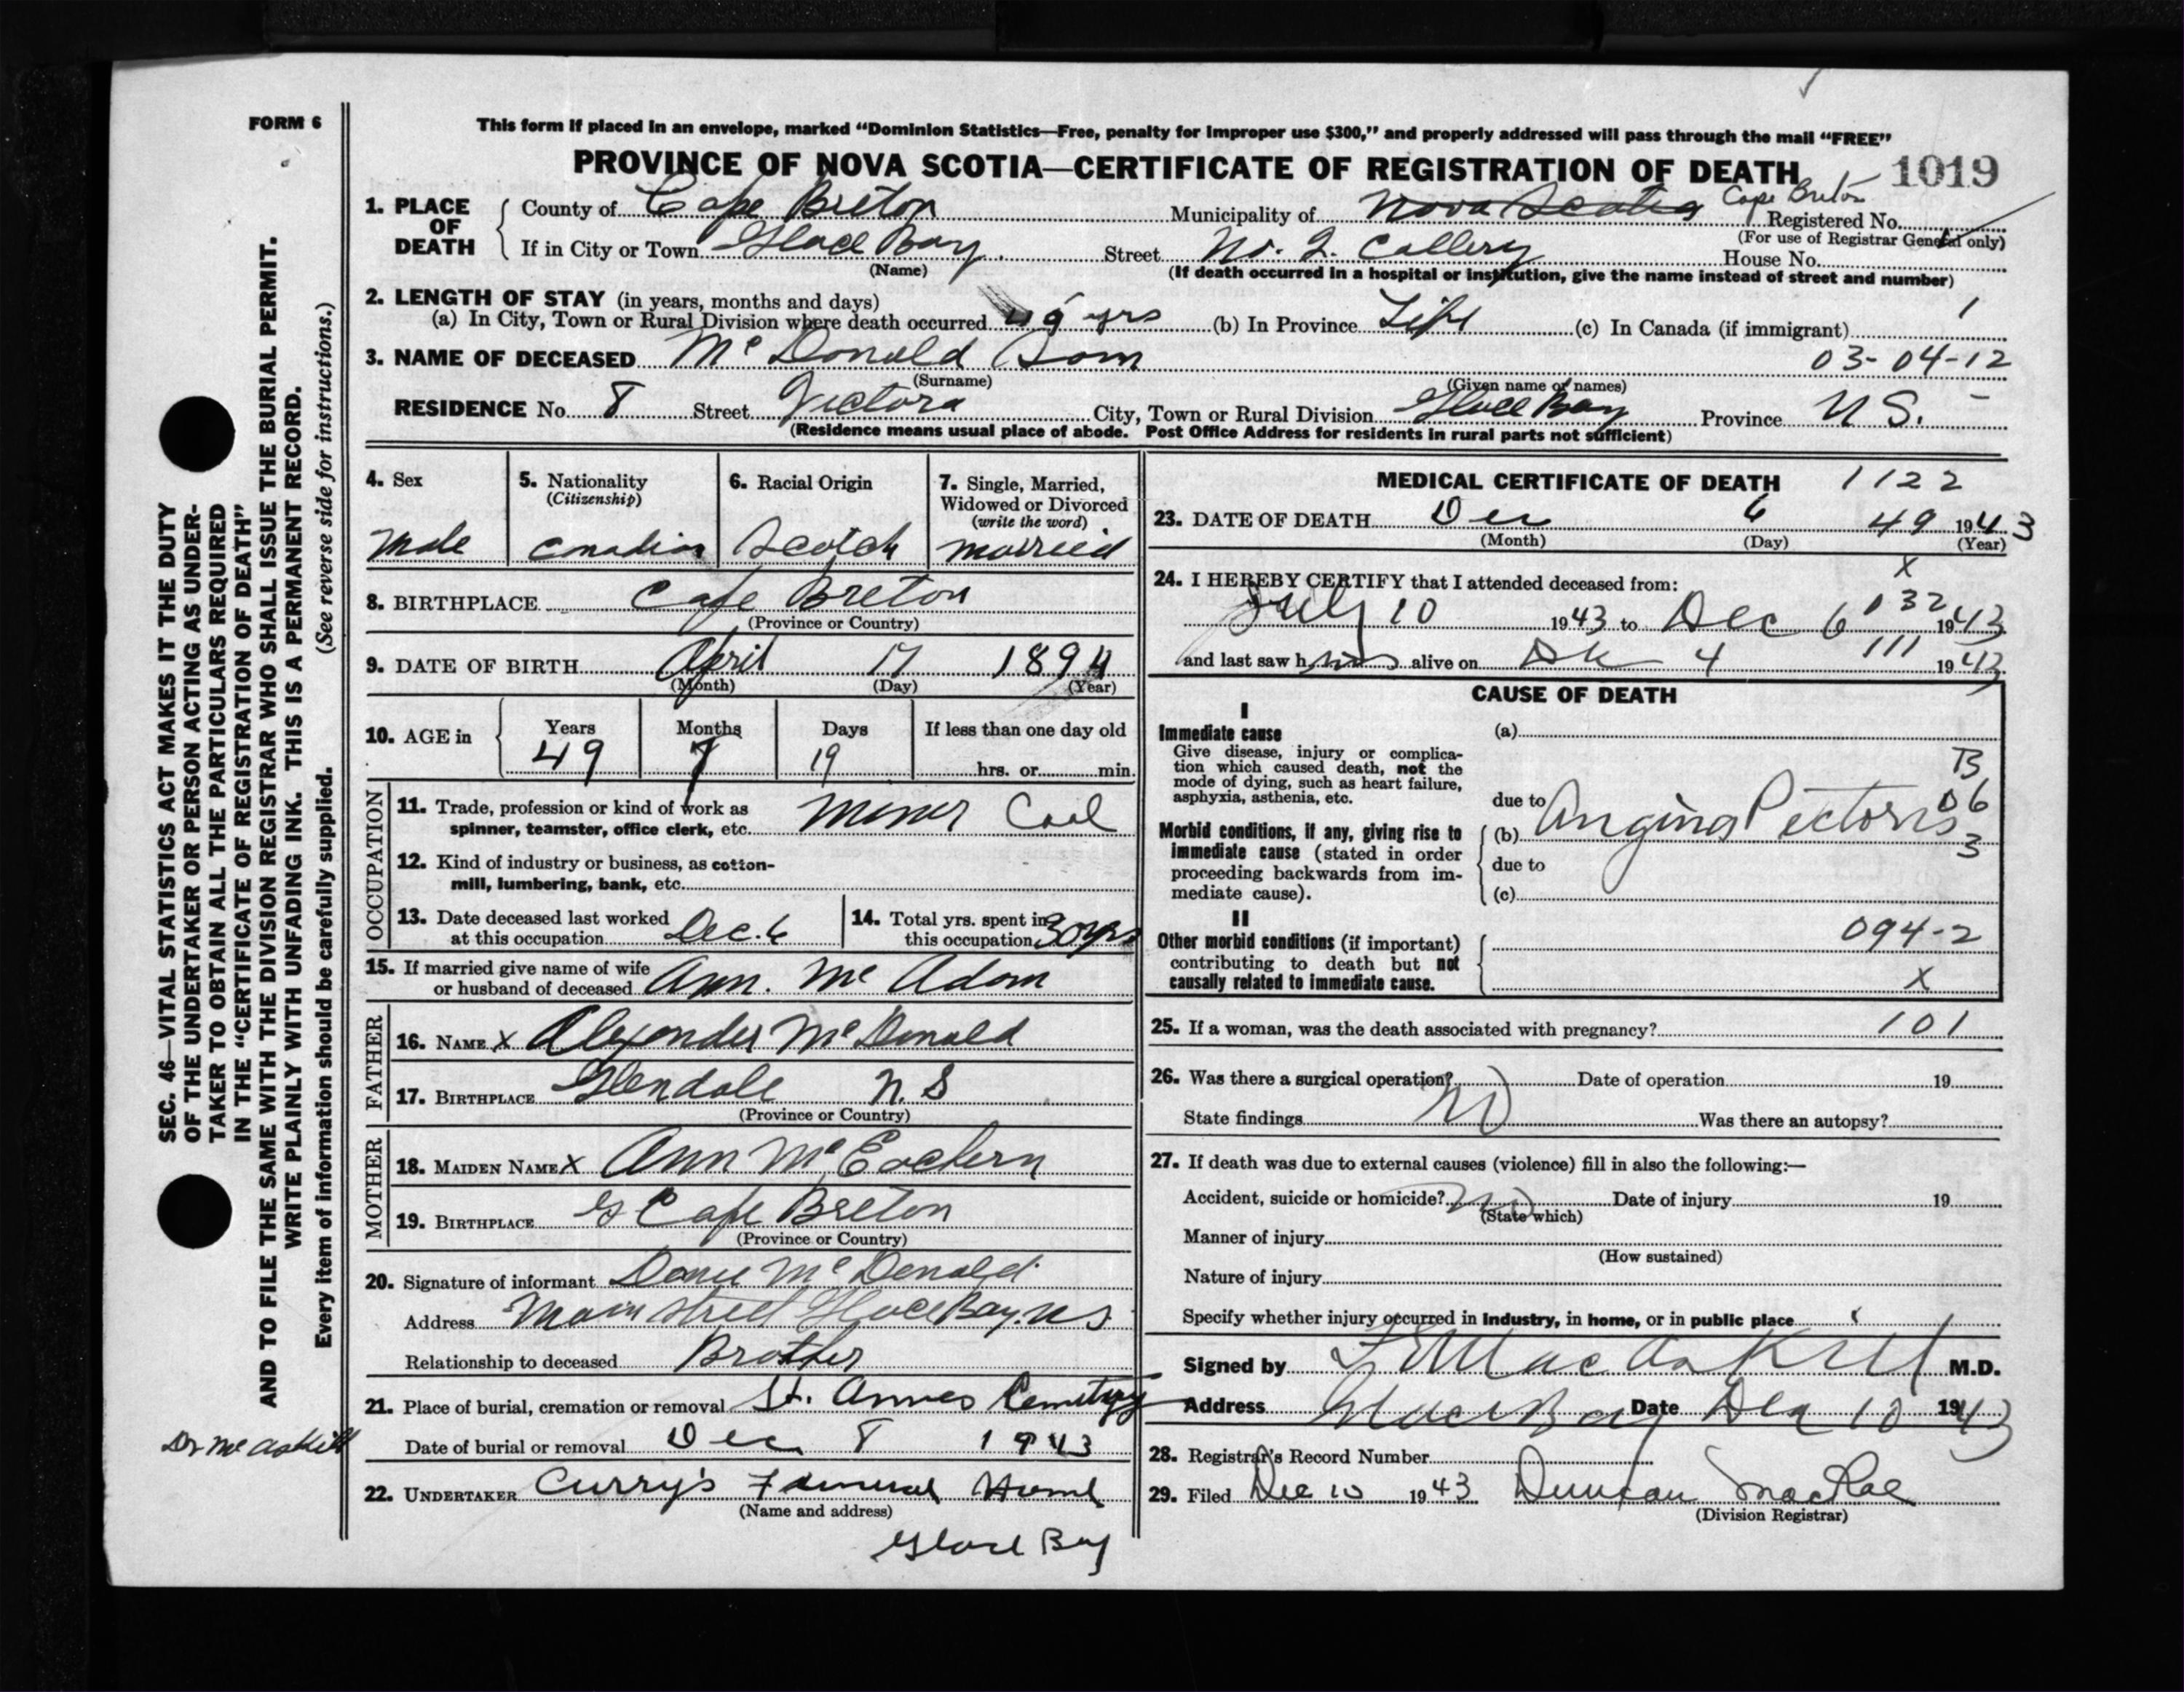 FORM 6
This form if placed in an envelope, marked “Dominion Statistics—Free, penalty for improper use $300,” and properly addressed will pass through the mail “FREE”
PROVINCE OF NOVA SCOTIA—CERTIFICATE OF REGISTRATION OF DEATH 1019
1. PLACE OF DEATH
County of Cape Breton Municipality of Nova Scotia Cape Breton Registered No.
(For use of Registrar General only)
If in City or Town Glace Bay. Street No. 2. Collery House No.
(Name) (If death occurred in a hospital or institution, give the name instead of street and number)
2. LENGTH OF STAY (in years, months and days)
(a) In City, Town or Rural Division where death occurred 49 yrs (b) In Province Life (c) In Canada (if immigrant) 1
3. NAME OF DECEASED McDonald 03-04-12
(Surname) (Given name of names)
RESIDENCE No. 8 Street Victora City, Town or Rural Division Glace Bay Province N.S.
(Residence means usual place of abode. Post Office Address for residents in rural parts not sufficient)
4. Sex
Male
5. Nationality
(Citizenship)
Canadian
6. Racial Origin
Scotch
7. Single, Married,
Widowed or Divorced
(write the word)
married
8. BIRTHPLACE Cape Breton
(Province or Country)
9. DATE OF BIRTH April 17 1894
(Month) (Day) (Year)
10. AGE in Years Months Days If less than one day old
49 7 19 hrs. or min.
OCCUPATION
11. Trade, profession or kind of work as
spinner, teamster, office clerk, etc. Miner Coal
12. Kind of industry or business, as cotton-
mill, lumbering, bank, etc.
13. Date deceased last worked
at this occupation Dec. 6
14. Total yrs. spent in
this occupation 30 yrs
15. If married give name of wife
or husband of deceased Ann. Mc Adam
FATHER
16. NAME X Alexander McDonald
17. BIRTHPLACE Glendale N.S
(Province or Country)
MOTHER
18. MAIDEN NAME X Ann McEachern
19. BIRTHPLACE Cape Breton
(Province or Country)
20. Signature of informant McDonald
Address Main street Glace Bay. N S.
Relationship to deceased Brother
21. Place of burial, cremation or removal St. Annes Cemetery
Date of burial or removal Dec 8 1943
22. UNDERTAKER Curry's Funeral Home
(Name and address)
Glace Bay
MEDICAL CERTIFICATE OF DEATH 1122
23. DATE OF DEATH Dec 6 49 1943
(Month) (Day) (Year)
24. I HEREBY CERTIFY that I attended deceased from: X
July 10 1943 to Dec 6 132 1943
and last saw him alive on Dec 4 111 1943
CAUSE OF DEATH
I
Immediate cause (a)
Give disease, injury or complica-
tion which caused death, not the
mode of dying, such as heart failure,
asphyxia, asthenia, etc.
B
due to 06
Morbid conditions, if any, giving rise to
immediate cause (stated in order
proceeding backwards from im-
mediate cause).
(b) Angina Pectoris 3
due to
(c)
II
Other morbid conditions (if important)
contributing to death but not
causally related to immediate cause.
094-2
X
25. If a woman, was the death associated with pregnancy? 101
26. Was there a surgical operation? Date of operation 19
State findings No Was there an autopsy?
27. If death was due to external causes (violence) fill in also the following:—
Accident, suicide or homicide? No Date of injury 19
(State which)
Manner of injury
(How sustained)
Nature of injury
Specify whether injury occurred in industry, in home, or in public place
Signed by MacAskill M.D.
Address Glace Bay Date Dec 10 1943
28. Registrar's Record Number
29. Filed Dec 10 1943 Duncan MacRae
(Division Registrar)
SEC. 46—VITAL STATISTICS ACT MAKES IT THE DUTY
OF THE UNDERTAKER OR PERSON ACTING AS UNDER-
TAKER TO OBTAIN ALL THE PARTICULARS REQUIRED
IN THE “CERTIFICATE OF REGISTRATION OF DEATH”
AND TO FILE THE SAME WITH THE DIVISION REGISTRAR WHO SHALL ISSUE THE BURIAL PERMIT.
WRITE PLAINLY WITH UNFADING INK. THIS IS A PERMANENT RECORD.
Every item of information should be carefully supplied. (See reverse side for instructions.)
Dr McAskill